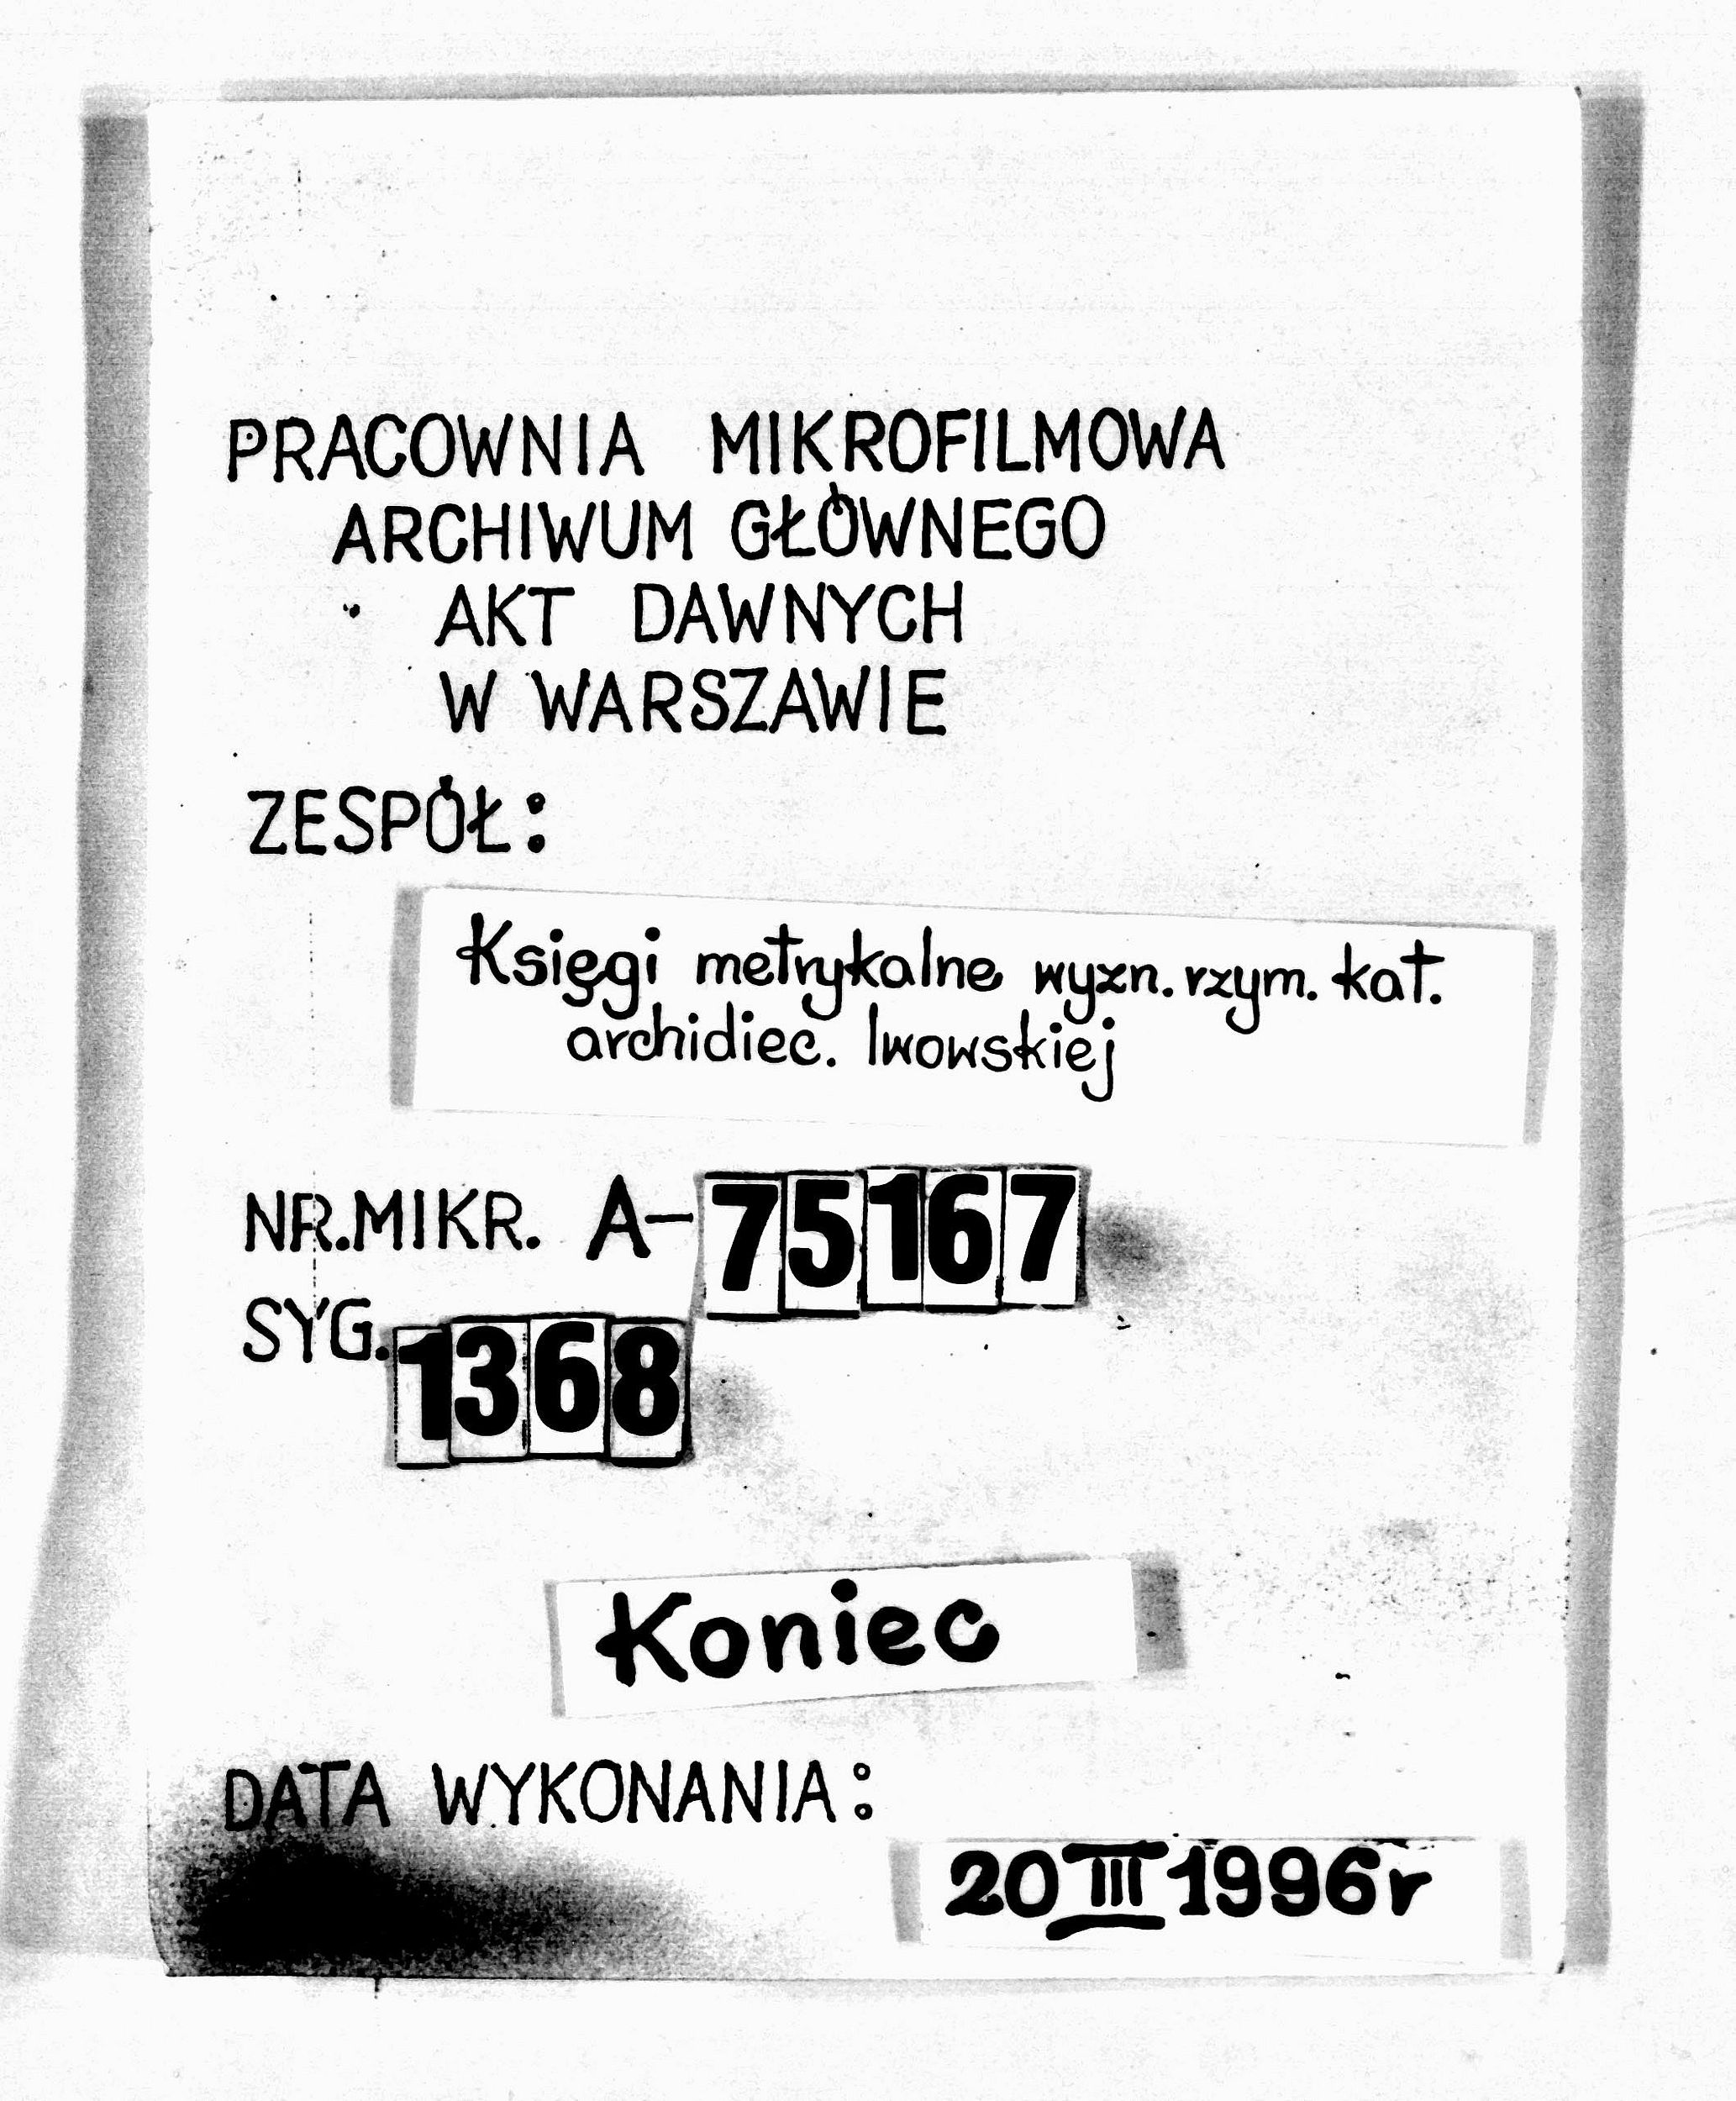 PRACOWNIA MIKROFILMOWA
ARCHIWUM GŁÓWNEGO
AKT DAWNYCH
W WARSZAWIE
ZESPÓŁ:
Księgi metrykalne wyzn. rzym. kat.
archidiec. lwowskiej
NR.MIKR. A-75167
SYG. 1368
Koniec
DATA WYKONANIA:
20 III 1996r